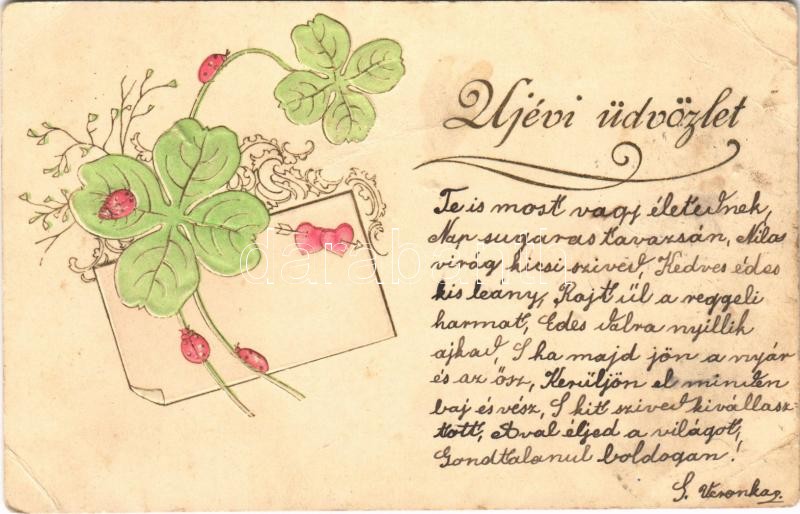 Ujévi üdvözlet
Te is most vagy életednek,
Nap sugaras tavazsán, Nila
virág, kicsi szived, Kedves édes
kis leány, Rajt ül a reggeli
harmat, Edes dalra nyillik
ajkad, S ha majd jön a nyár
és az ősz, Kerüljön el minden
baj és vész, S kit szived kivállasz
tott, Aval éljed a világot,
Gondtalanul boldogan!
S. Veronka